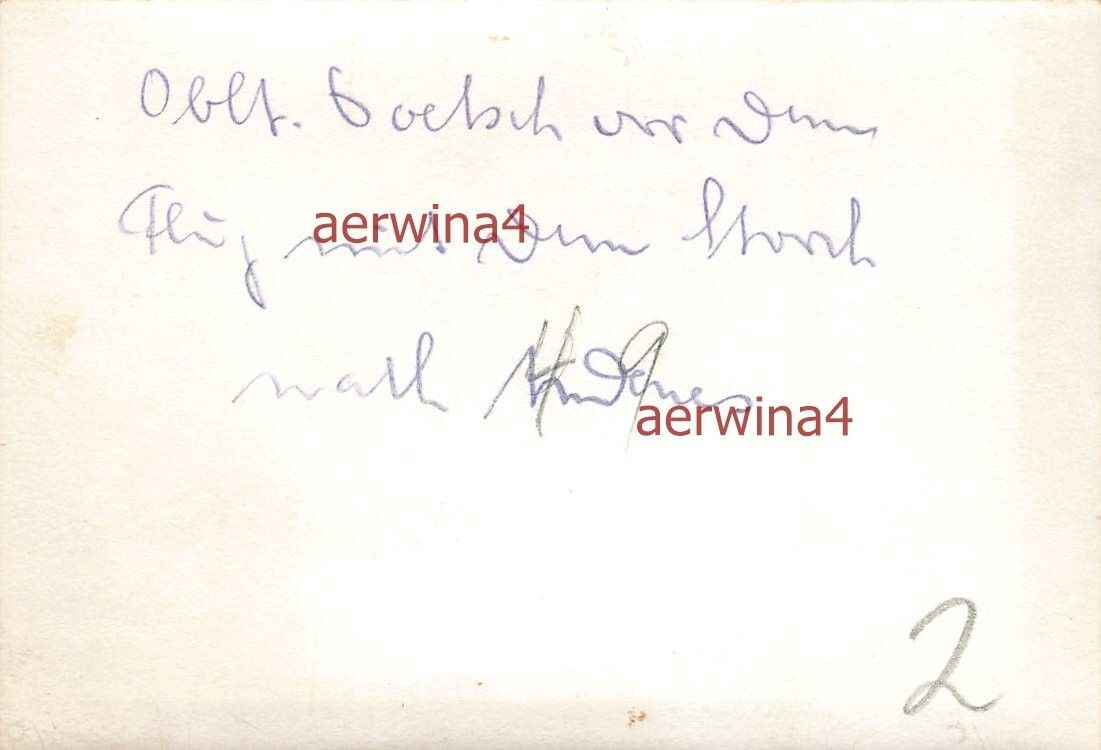 Oblt. Goetsch vor dem
Flug mit dem Storch
nach Andenes
49
2
aerwina4
aerwina4